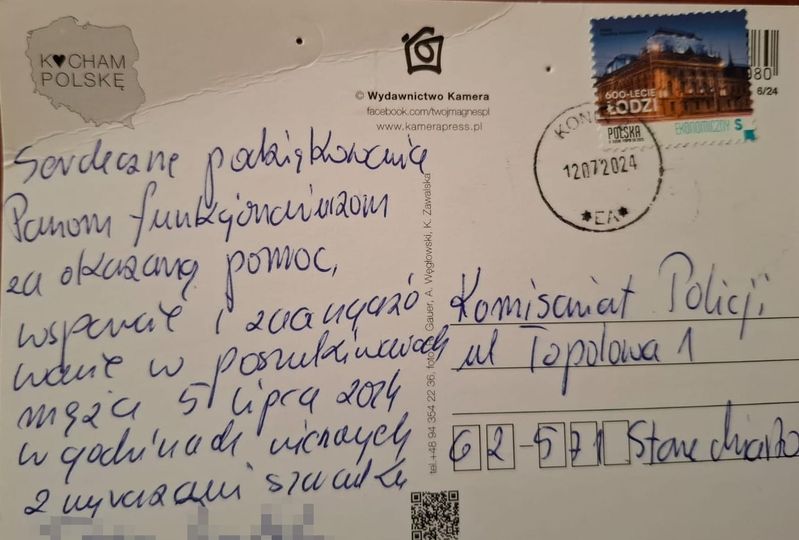 K♥CHAM
POLSKĘ
© Wydawnictwo Kamera
facebook.com/twojmagnespl
www.kamerapress.pl
600-LECIE
ŁODZI
POLSKA
EKONOMICZNY S
980
6/24
12072024
*EA*
Serdeczne podziękowanie
Panom funkcjonariuszom
za okazaną pomoc,
wsparcie i zaangażo
wanie w poszukiwaniach
męża 5 lipca 2024
w godzinach nocnych
z wyrazami szacunku
tel.+48 94 354 22 36, Gauer, A. Węglowski, K. Zawalska
Komisariat Policji
ul Topolowa 1
62-571 Stare Miasto